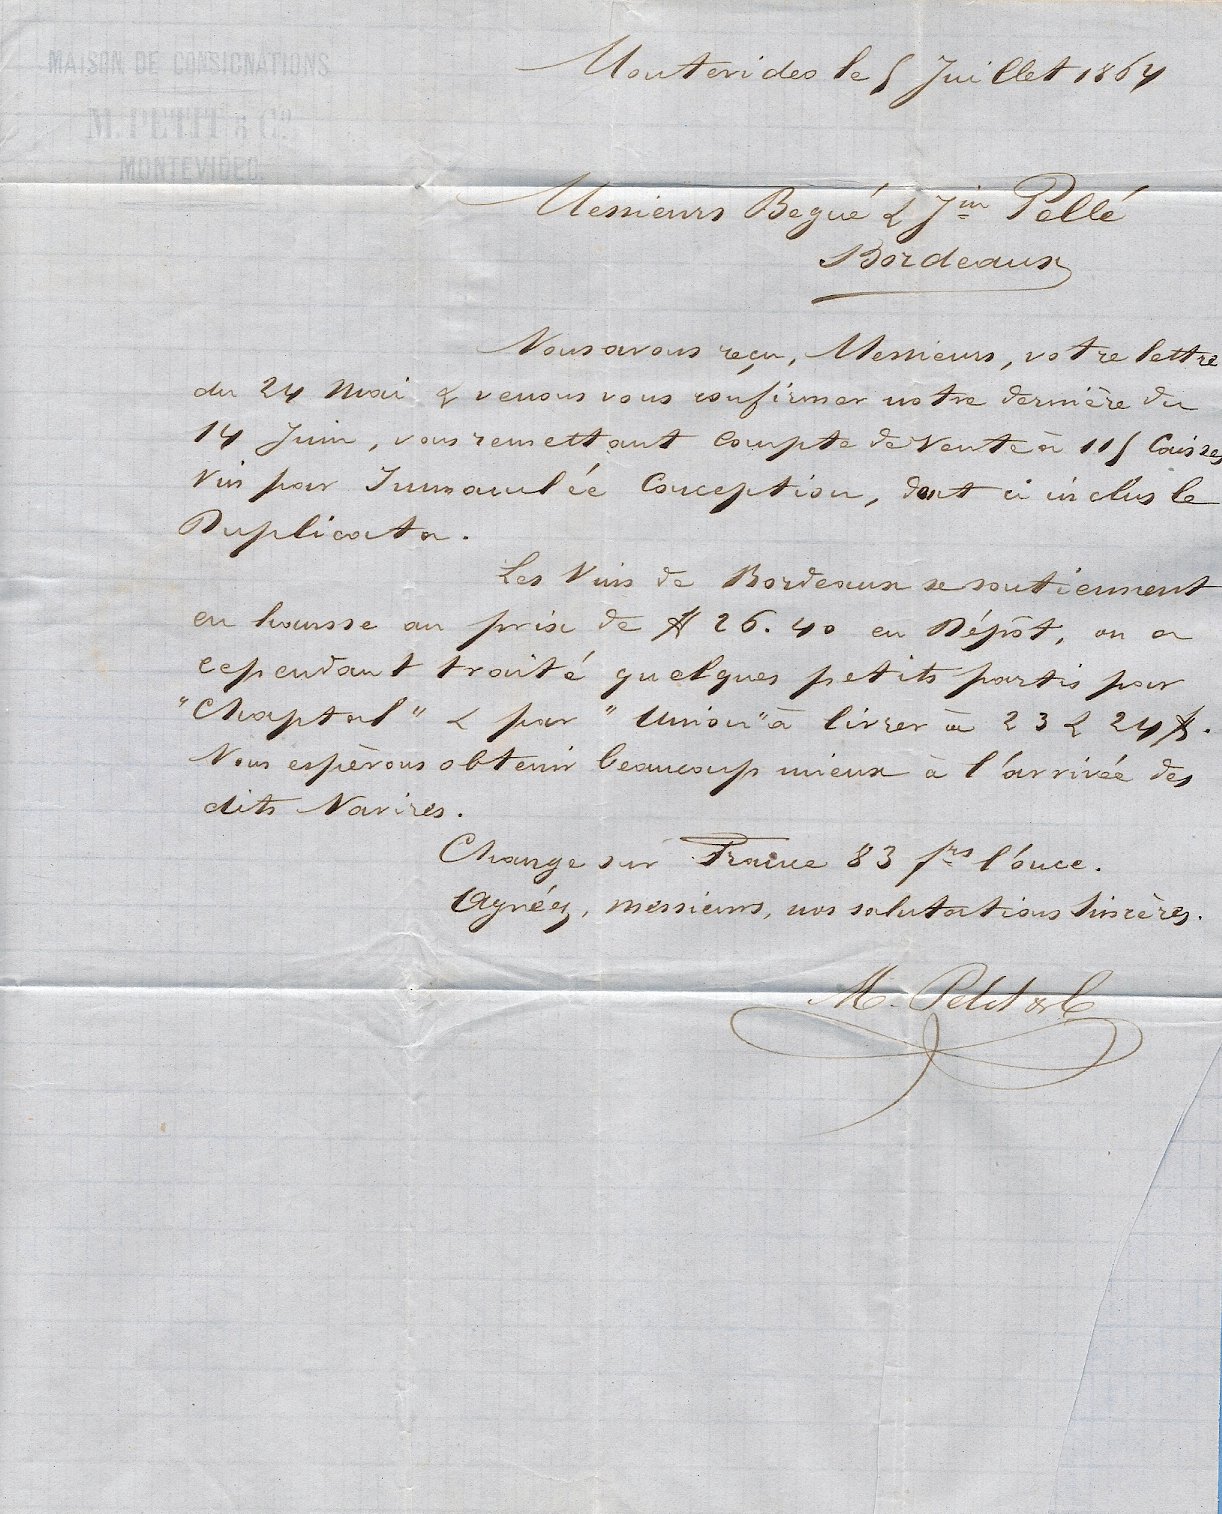 MAISON DE CONSIGNATIONS
M. PETIT & Cº
MONTEVIDEO.
Montevideo le 5 Juillet 1864
Messieurs Begué & Jin Pellé
Bordeaux
Nous avons reçu, Messieurs, votre lettre
du 24 Mai & venons vous confirmer notre dernière du
14 Juin, vous remettant Compte de Vente à 115 Caisses
Vin par Immaculée Conception, dont ci inclus le
Duplicata.
Les Vins de Bordeaux se soutiennent
en hausse au prix de $ 26.40 en Dépôt, on a
cependant traité quelques petits partis par
"Chaptal" & par "Union" à livrer à 23 & 24 $.
Nous espèrons obtenir beaucoup mieux à l'arrivée des
dits Navires.
Change sur France 83 frs l'once.
Agréez, messieurs, nos salutations sincères.
M. Petit & C